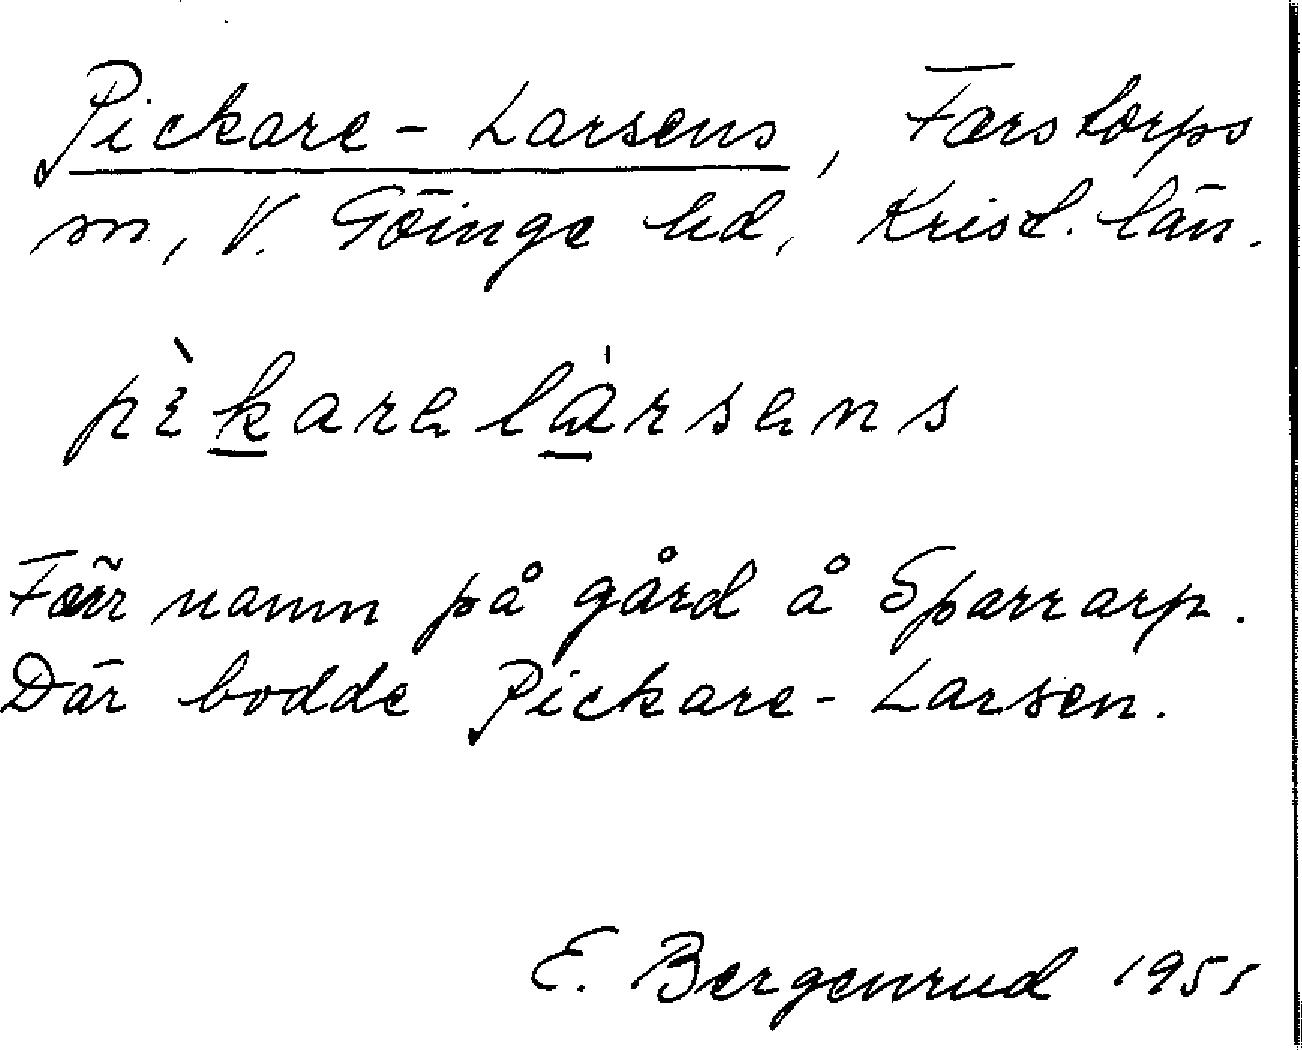 Pickare-Larsens, Farstorps
sn, V. Göinge hd, Krist. län.
pìkarelársens
Förr namn på gård å Sparrarp.
Där bodde Pickare-Larsen.
E. Bergenrud 1955